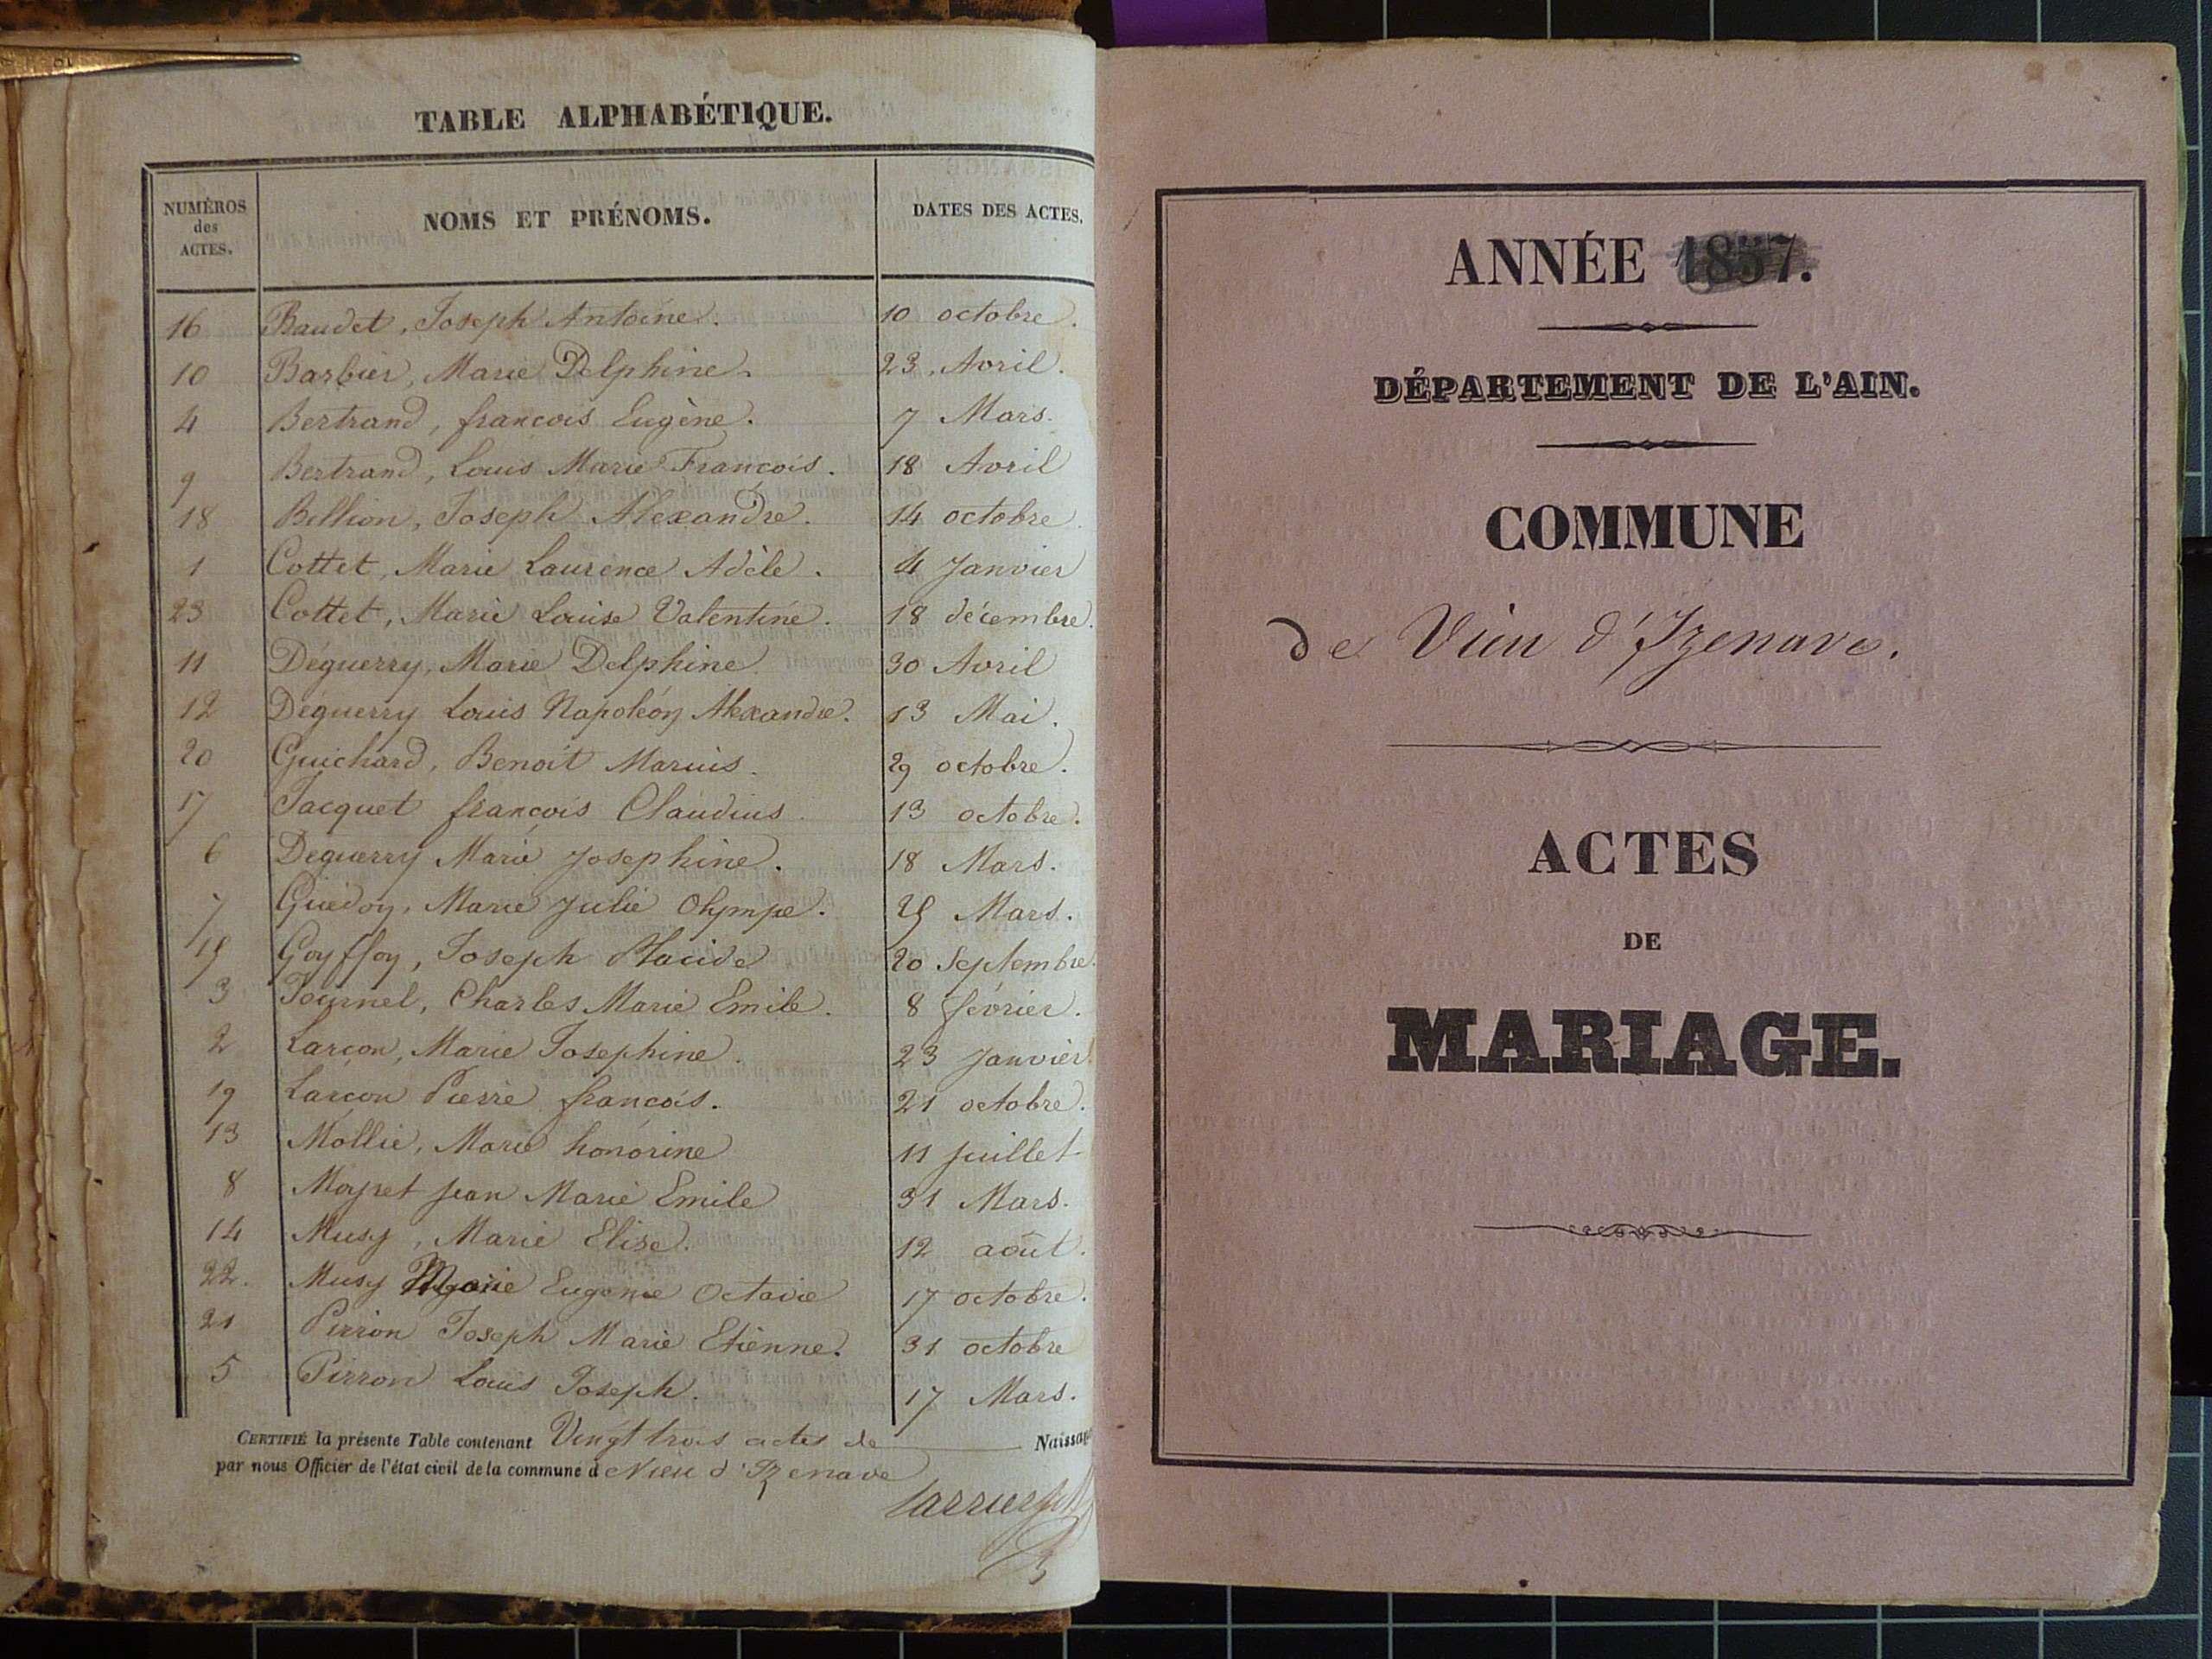 TABLE ALPHABÉTIQUE.
NUMÉROS des ACTES. NOMS ET PRÉNOMS. DATES DES ACTES.
16 Baudet, Joseph Antoine. 10 octobre.
10 Barbier, Marie Delphine. 23 Avril.
4 Bertrand, françois Eugène. 7 Mars.
9 Bertrand, Louis Marie François. 18 Avril
18 Billion, Joseph Alexandre. 14 octobre
1 Cottet, Marie Laurence Adèle. 4 Janvier
23 Cottet, Marie Louise Valentine. 18 décembre.
11 Déguerry, Marie Delphine 30 Avril
12 Déguerry Louis Napoléon Alexandre. 13 Mai.
20 Guichard, Benoît Marius. 29 octobre.
17 Jacquet françois Claudius. 13 octobre.
6 Déguerry Marie Josephine. 18 Mars.
7 Guédon, Marie Julie Olympe. 25 Mars.
15 Goyffon, Joseph Placide 20 Septembre.
3 Journel, Charles Marie Emile. 8 février.
2 Larçon, Marie Josephine. 23 Janvier
19 Larçon Pierre françois. 21 octobre.
13 Mollie, Marie honorine 11 Juillet
8 Moyret Jean Marie Emile 31 Mars.
14 Musy, Marie Elise. 12 août.
22. Musy Marie Eugenie Octavie 17 octobre.
21 Pirron Joseph Marie Etienne. 31 octobre
5 Pirron Louis Joseph. 17 Mars.
CERTIFIÉ la présente Table contenant Vingt trois actes de Naissan
par nous Officier de l'état civil de la commune d Vieu d'Izenave
ANNÉE 1857.
DÉPARTEMENT DE L'AIN.
COMMUNE
de Vieu d'Izenave.
ACTES
DE
MARIAGE.